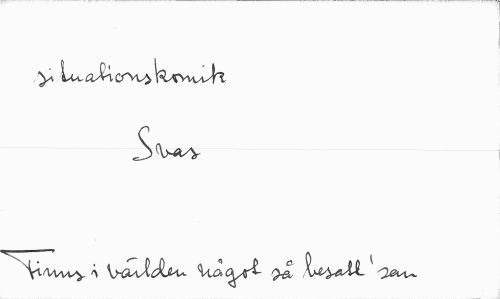 situationskomik
Svas
Finns i världen något så besatt' san